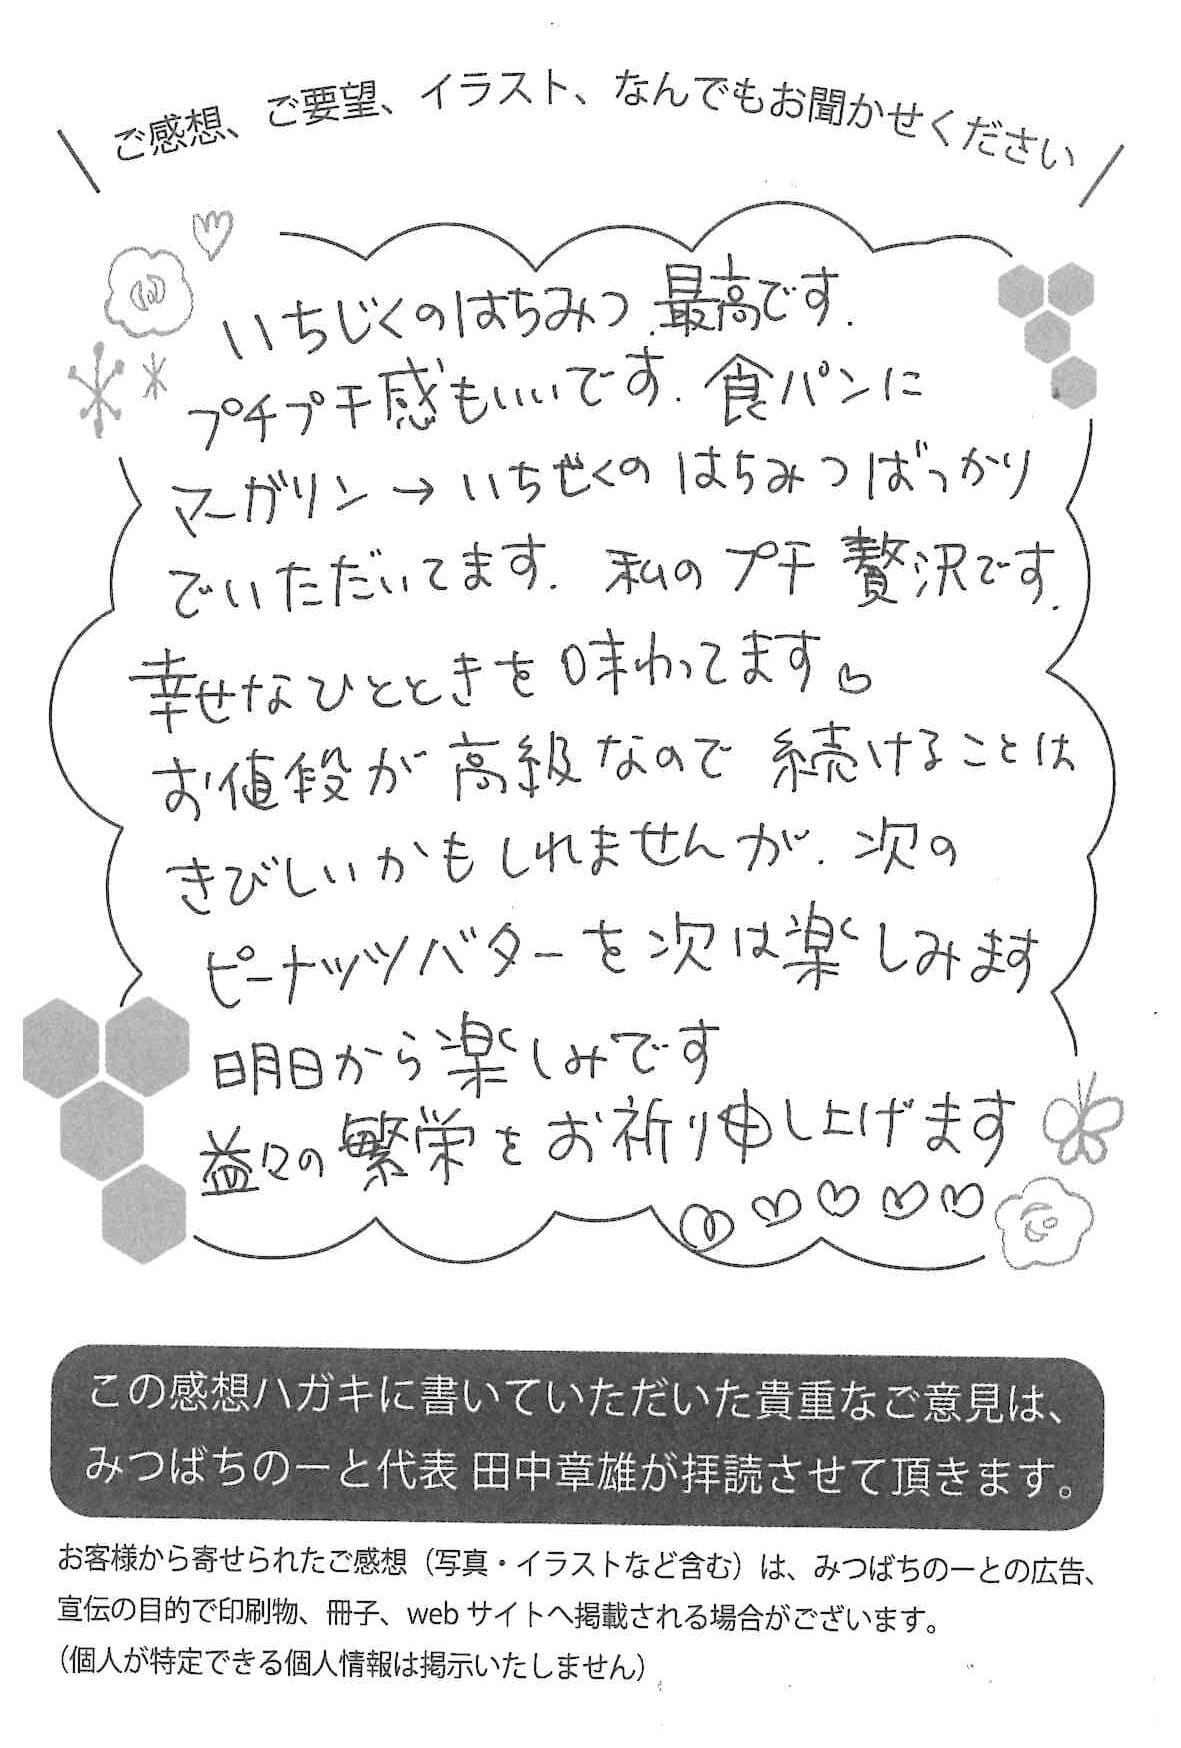 ご感想、ご要望、イラスト、なんでもお聞かせください
いちじくのはちみつ.最高です.
プチプチ感もいいです.食パンに
マーガリン→いちぢくのはちみつばっかり
でいただいてます.私のプチ贅沢です.
幸せなひとときを味わってます♡
お値段が高級なので続けることは
きびしいかもしれませんが.次の
ピーナッツバターを次は楽しみます
明日から楽しみです
益々の繁栄をお祈り申し上げます
♡♡♡♡♡
この感想ハガキに書いていただいた貴重なご意見は、
みつばちのーと代表 田中章雄が拝読させて頂きます。
お客様から寄せられたご感想（写真・イラストなど含む）は、みつばちのーとの広告、
宣伝の目的で印刷物、冊子、webサイトへ掲載される場合がございます。
（個人が特定できる個人情報は掲示いたしません）